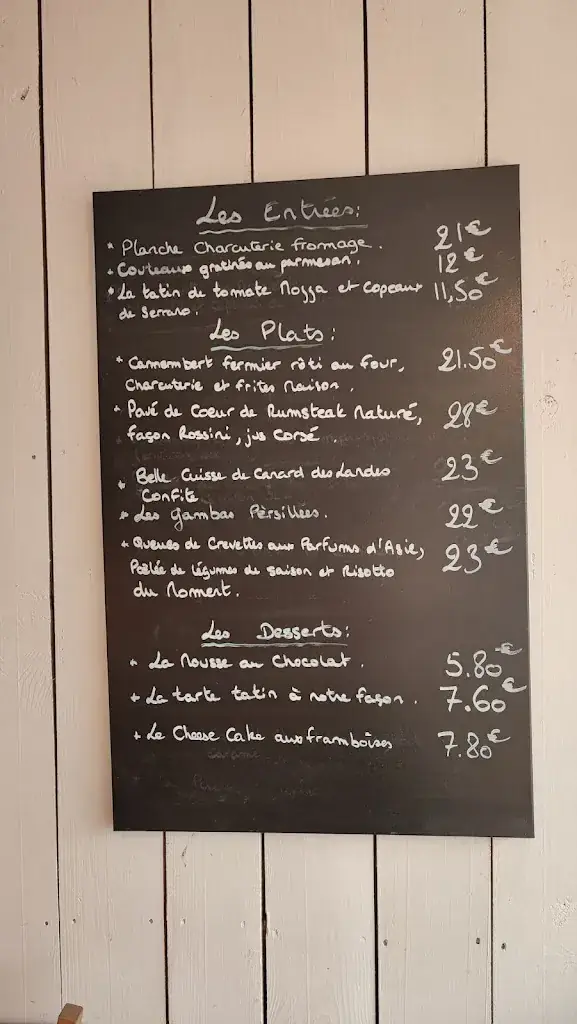 Les Entrées:
* Planche Charcuterie fromage. 21€
* Couteaux gratinés au parmesan. 12€
* La tatin de tomate Mozza et Copeaux 11,50€
de Serrano.
Les Plats:
* Cammembert fermier rôti au four, 21.50€
Charcuterie et frites Maison.
* Pavé de Coeur de Rumsteak Maturé, 28€
façon Rossini, jus Corsé.
* Belle Cuisse de Canard des Landes 23€
Confite
* Les Gambas Persillées. 22€
* Queues de Crevettes aux Parfums d'Asie, 23€
Poêlée de légumes de saison et Risotto
du Moment.
Les Desserts:
* La Mousse au Chocolat. 5.80€
* La tarte tatin à notre façon. 7.60€
* Le Cheese Cake aux framboises 7.80€